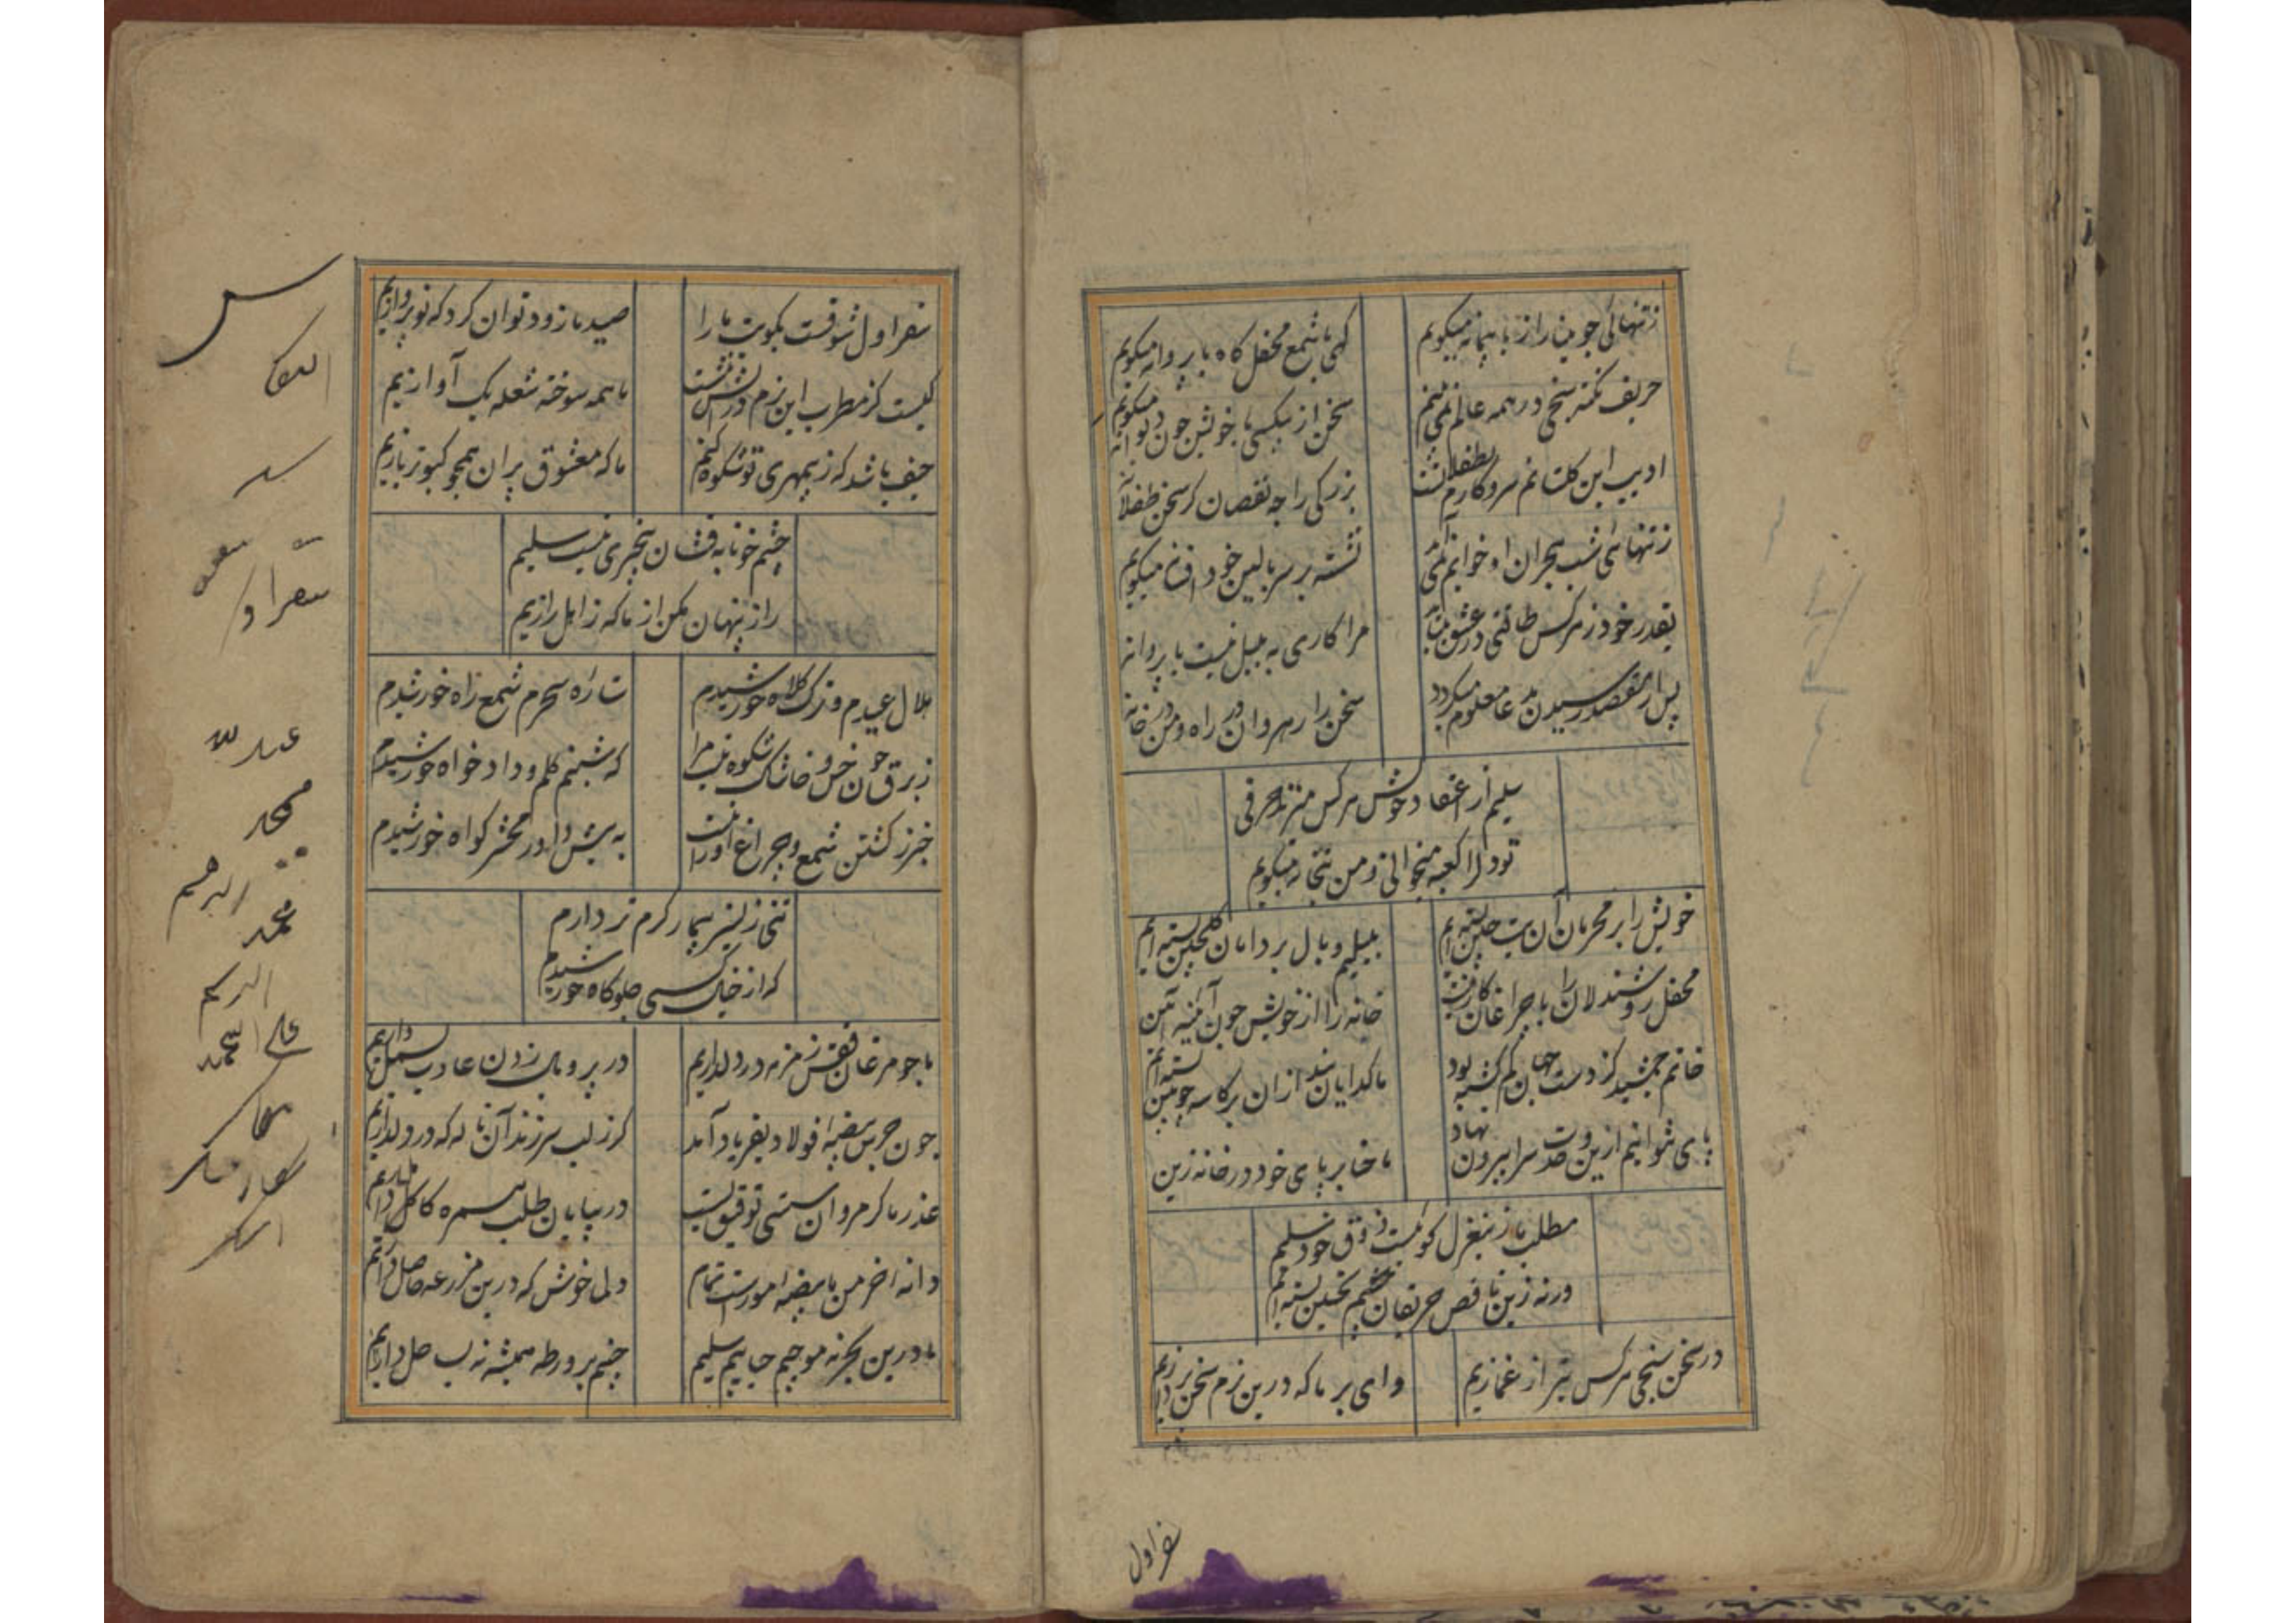 ز تنهائی جو مینا راز با پیمانه میکویم
کهی با شمع محفل کاه با پروانه میکویم
حریف نکته سنجی در همه عالم نمی بینم
سخن از بیکسی با خویشتن جون دیوانه میکویم
ادیب این کلستانم سروکارم بطفلانست
بزرکی را جه نقصان کر سخن طفلانه
ز تنهائی شب هجران او خوابم نمی آید
نشسته بر سر بالین خود افسانه میکویم
بقدر خود ز هر کس طاقتی در عشق می باید
مرا کاری به بلبل نیست با پروانه
پس از مقصد رسیدن مدعا معلوم میکردد
سخن را رهروان در راه و من در خانه
سلیم از اعتقاد خویش هر کس میزند حرفی
تو دل را کعبه میخوانی و من بتخانه میکویم
خویش را بر محرمان آن بت جین بسته ایم
بلبلیم و بال بر دامان کلچین بسته ایم
محفل روشندلان را با جراغان کار نیست
خانه را از خویش جون آئینه آئین بسته ایم
خاتم جمشید کز دست جهان کم کشته بود
ما کدایان بند از ان بر کاسه جوبین
پای نتوانیم ازین وحدت سرا بیرون نهاد
ما حنا بر پای خود در خانه زین
مطلب ما زین غزل کوئیست ذوق خود سلیم
ورنه زین ناقص حریفان چشم تحسین بسته ایم
در سخن سنجی هر کس بتر از غمازیم
وای بر ما که درین بزم سخن پردازیم
سفر اول
سفر اول شوقست بکویت ما را
صید ما زود توان کرد که نو پروازیم
کیست کز مطرب این بزم در آتش ننشست
ما همه سوخته شعله یک آوازیم
حیف باشد که ز بیمهری تو شکوه کنم
ما که معشوق پران همچو کبوتر بازیم
چشم خونابه فشان بیخبری نیست سلیم
راز پنهان مکن از ما که ز اهل رازیم
هلال عیدم و ترک کلاه خورشیدم
ستاره سحرم شمع راه خورشیدم
ز برق جون خس و خاشاک شکوه نیست مرا
که شبنم کلم و دادخواه خورشیدم
خبر ز کشتن شمع و جراغ او را نیست
به پیش داور محشر کواه خورشیدم
تنی ز بستر بیمار کرم تر دارم
که از خیال کسی جلوه کاه خورشیدم
ما جو مرغان قفس زمزمه در دل داریم
در پر و بال زدن عادت بسمل داریم
جون جرس بیضه فولاد بفریاد آمد
کر ز لب سر زند آن ناله که در دل داریم
عذر ما کرمروان سستی توفیق بست
در بیابان طلب همره کاهل داریم
دانه خرمن ما بیضه مورست تمام
دلی خوش که درین مزرعه حاصل داریم
ما درین بحر نه موجیم حبابیم سلیم
چشم بر ورطه همیشه نه بساحل داریم
عبد لله
محمد
محمد